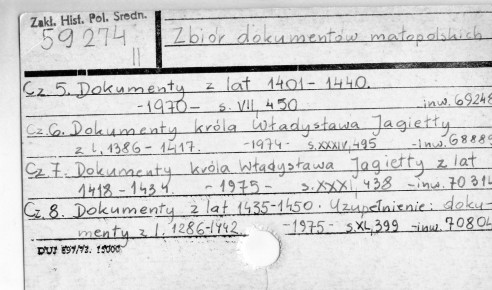 Zakł. Hist. Pol. Średn.
59274
II
Zbiór dokumentów małopolskich
Cz. 5. Dokumenty z lat 1401-1440.
-1970- s. VII, 450 inw. 69248
Cz. 6. Dokumenty króla Władysława Jagiełły
z l. 1386-1417. -1974- s. XXXIV, 495 -inw. 68889
Cz. 7. Dokumenty króla Władysława Jagiełły z lat
1418-1434. -1975- s. XXXI, 438 -inw. 70314
Cz. 8. Dokumenty z lat 1435-1450. Uzupełnienie: doku-
menty z l. 1286-1442. -1975- s. XL, 399 -inw. 7080
DUJ 897/73. 15000